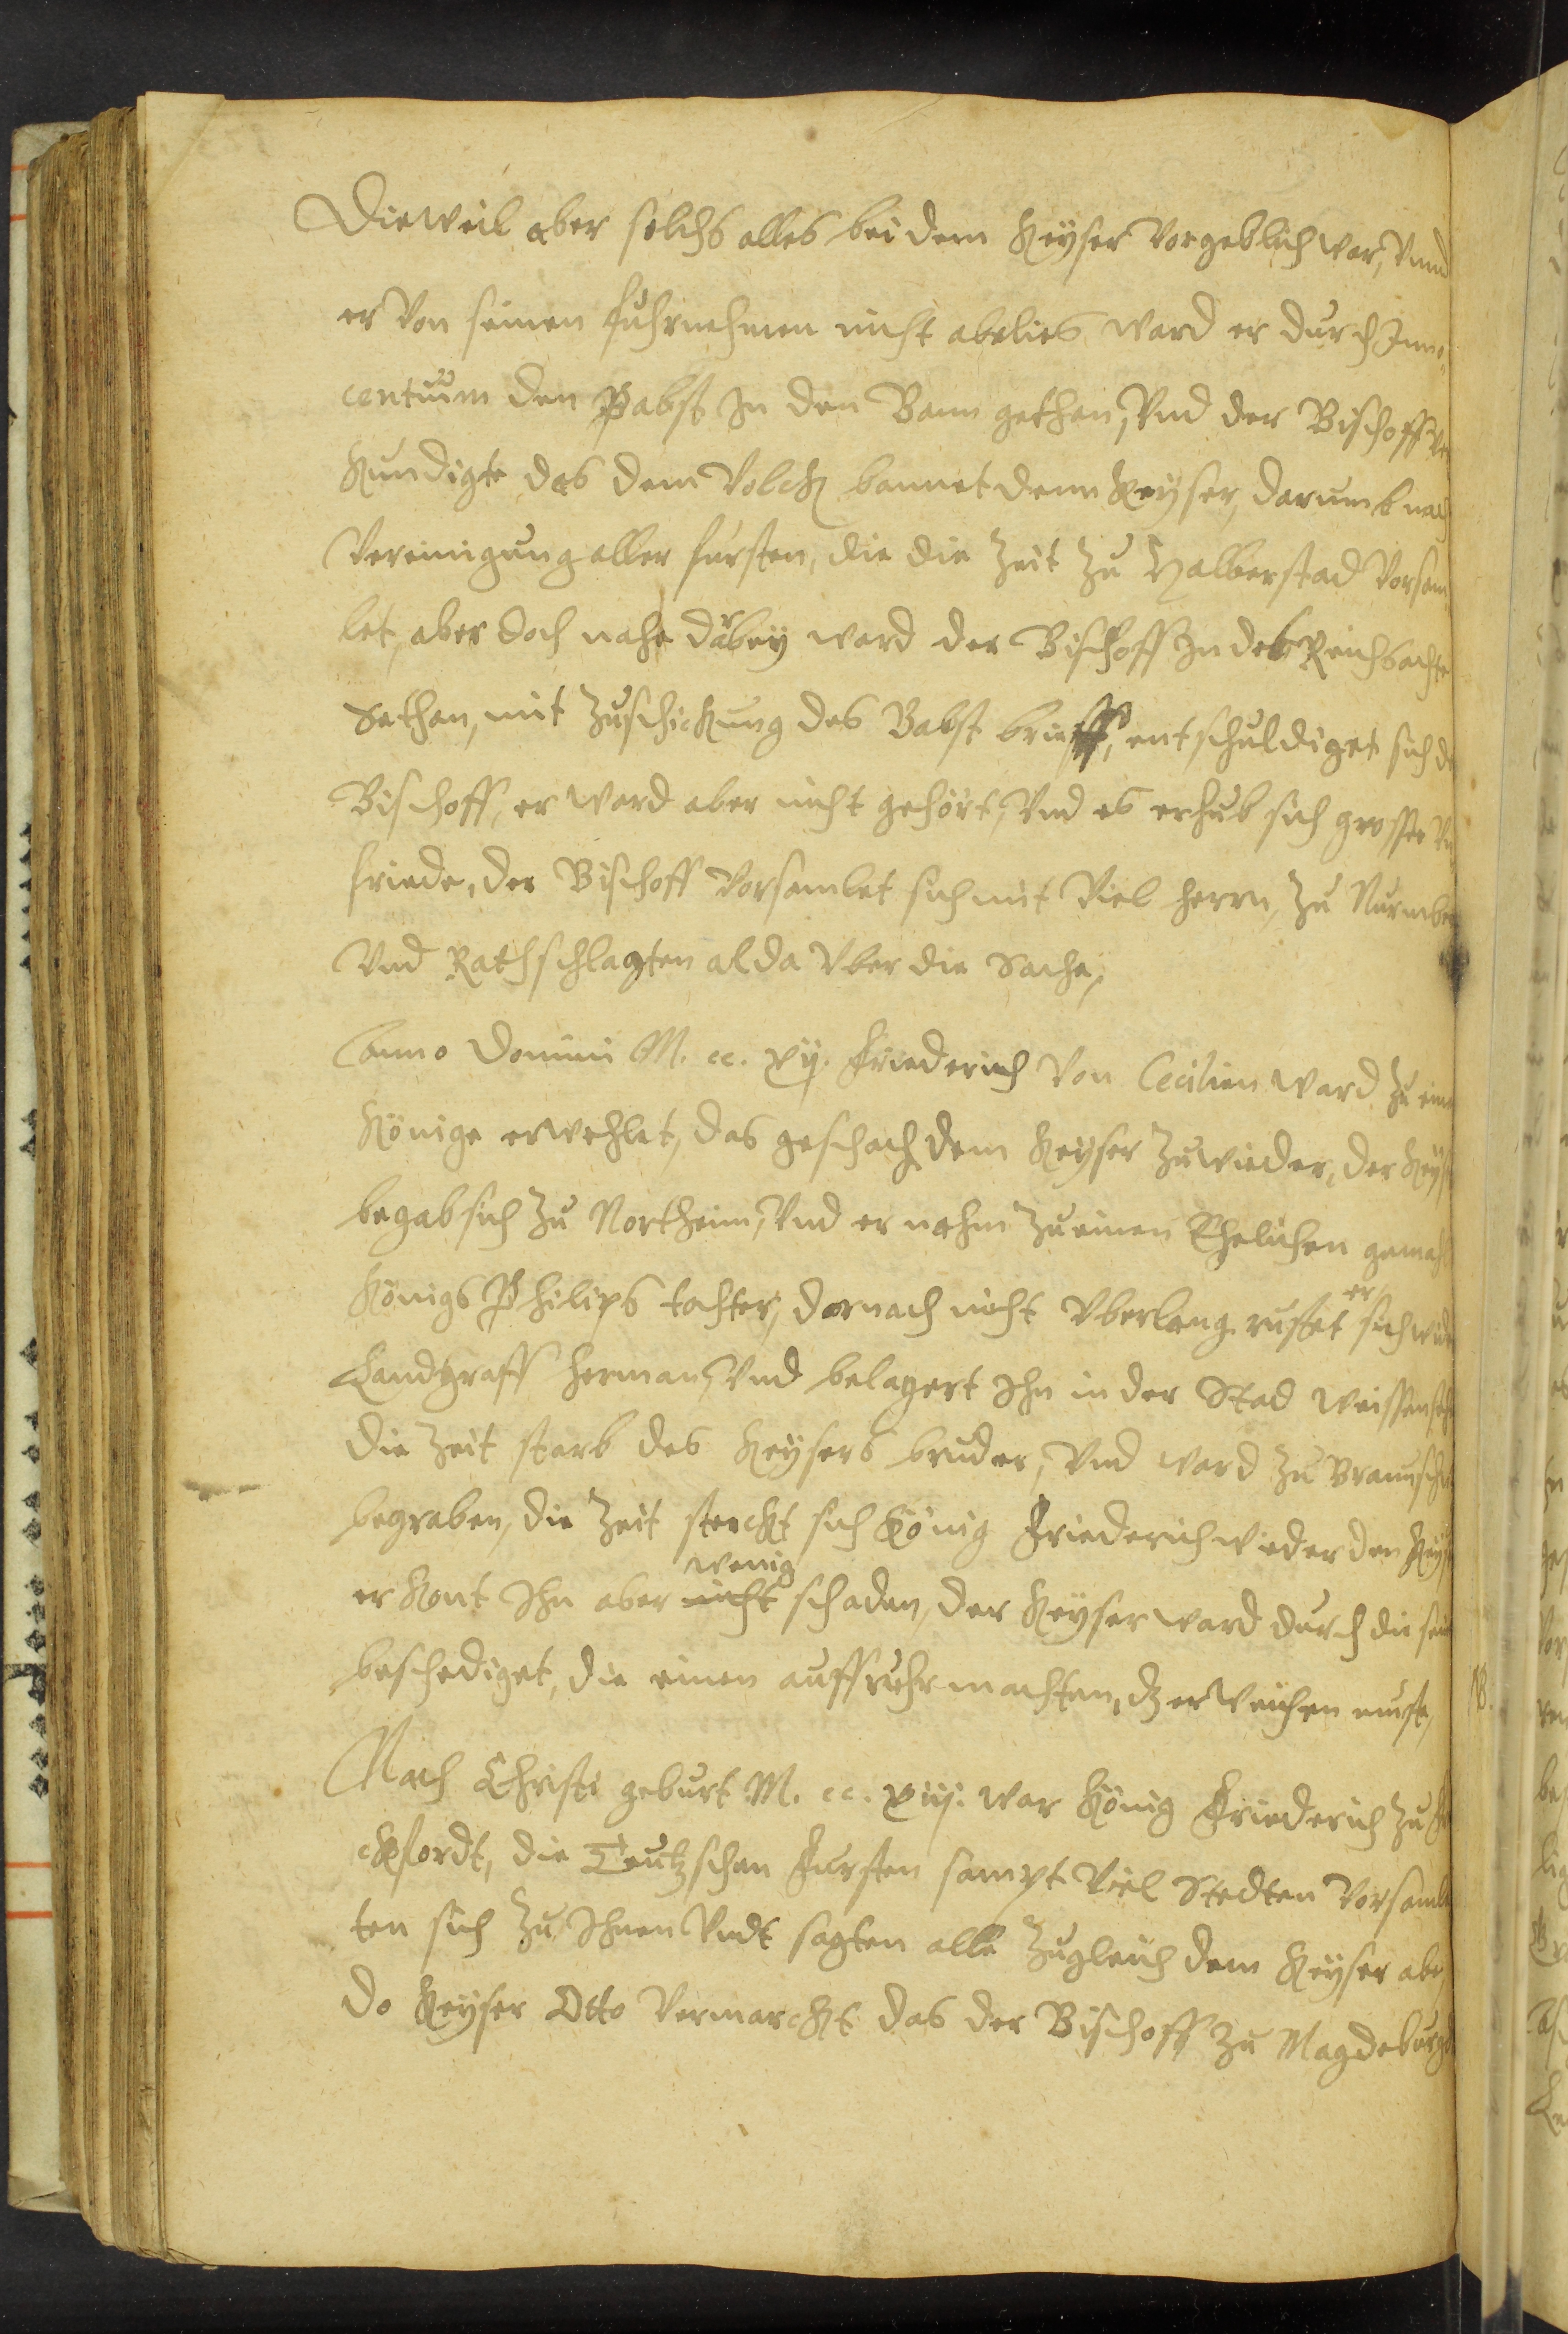 Dieweil aber solchs alles bei dem Keyser vorgeblich war, Vnnd
er Von seinen fuhrnehmen nicht abelies ward er durch Inno-
centium den Pabst In den Bann gethan, Vnd der Bischoff
Kundigte das dem Volck bannet denn Keyser, darumb nach
Vereinigung aller fürsten, die die Zeit Zu Halberstad Vorsam
let, aber doch nahe darbey ward der Bischoff In des Reichs achte
Gethan, mit Zuschickung des Babst brieff, entschuldiget sich
Bischoff, er ward aber nicht gehört, Vnd es erhub sich grosser
friede, der Bischoff Vorsamlet sich mit Viel herrn, Zu Nurmb
Vnd Rathschlagten alda Vber die Sache,
Anno Domini M. cc. xij. Friederich Von Cecilien ward Zu
Könige erwehlet, das geschach dem Keyser Zuwieder, der Key
begab sich Zu Northeim, Vnd er nahm Zu einen Ehelichen gemahl
Königs Philips tochter, darnach nicht Vberlang rüstet er sich wid
Landgraff herman, Vnd belagert Ihn in der Stad weissens
die Zeit starb des Keysers bruder, Vnd ward Zu Braunsch
begraben, die Zeit sterckt sich König Friederich wieder den Key
er Kont Ihn aber nicht wenig schaden, der Keyser ward durch die
beschediget, die einen auffruhr machten, dz er weichen must,
Nach Christi geburt M. cc. xiij. war König Friederich Zu
ckfordt, die Teutzschen Fursten sampt Viel Stedten Vorsaml
ten sich Zu Ihnen Vndt sagten alle Zugleich dem Keyser abe,
do Keyser Otto Vermarckt das der Bischoff Zu Magdeburg